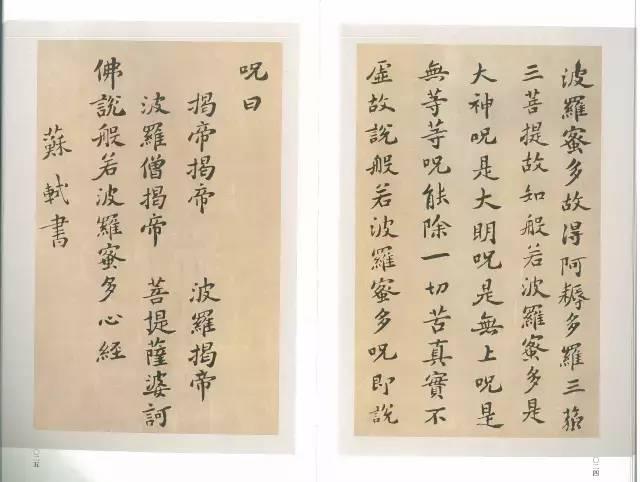 波羅蜜多故得阿耨多羅三藐
三菩提故知般若波羅蜜多是
大神呪是大明呪是無上呪是
無等等呪能除一切苦真實不
虛故說般若波羅蜜多呪即說
〇二四
呪曰
揭帝揭帝 波羅揭帝
波羅僧揭帝 菩提薩婆訶
佛說般若波羅蜜多心經
蘇軾書
〇二五